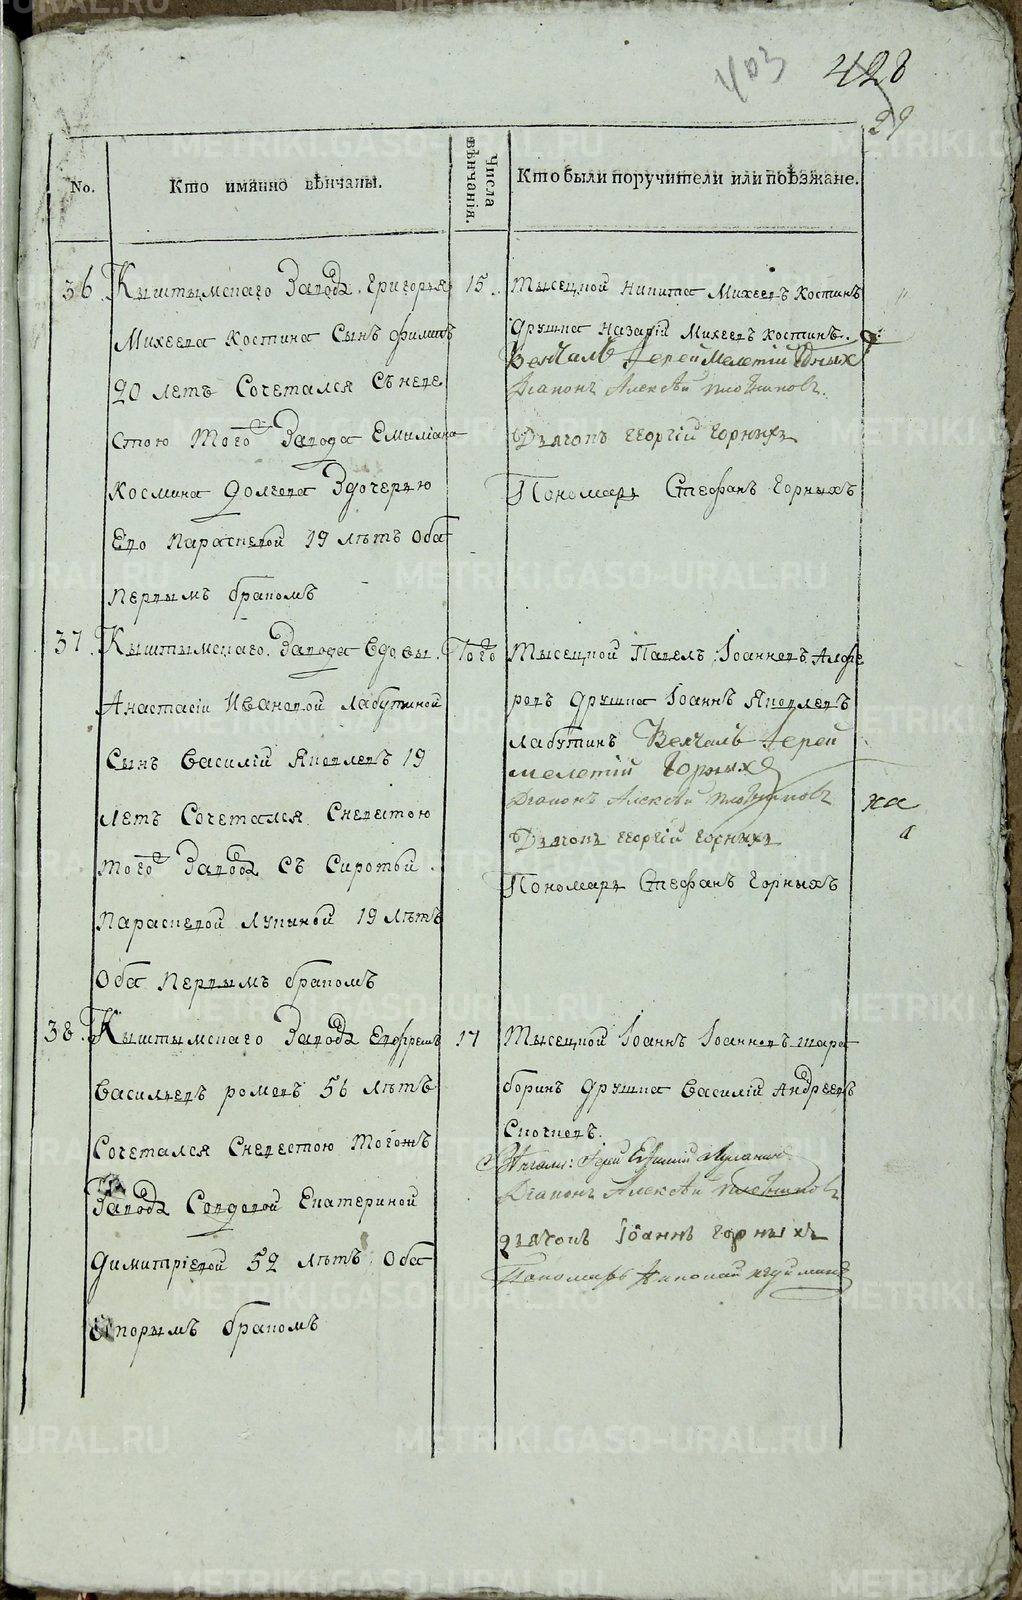 403
428
29
No.
Кто имянно вѣнчаны.
Числа вѣнчанія.
Кто были поручители или поѣзжане.
36. Кыштымскаго Завода Григорья
Михеева Костина Сынъ Филипъ
20 летъ Сочетался Съ неве
стою Того Завода Емиліана
Космина Долгова Здочерью
Ево Параскевой 19 лѣтъ Оба
Первымъ бракомъ
15.
Тысецкой Никита Михеевъ Костинъ
Дружка Назарій Михеевъ Костинъ.
Венчалъ Іерей Мелетій Горныхъ
Діаконъ Алексѣй Плотниковъ.
Дьячокъ Георгій Горныхъ
Пономарь Стефанъ Горныхъ
37. Кыштымскаго Завода Вдовы
Анастасіи Ивановой Лабутиной
Сынъ Василій Яковлевъ 19
летъ Сочетался Сневестою
того Завода Съ Сиротой
Параскевой Лупиной 19 лѣтъ
Оба Первымъ бракомъ
Того
Тысецкой Павелъ Іоанновъ Алфе
ровъ Дружка Іоаннъ Яковлевъ
Лабутинъ Венчалъ Іерей
Мелетій Горныхъ
Діаконъ Алексѣй Плотниковъ
Дьячокъ Георгій Горныхъ
Пономарь Стефанъ Горныхъ
38. Кыштымскаго Завода Евфремъ
Васильевъ 56 лѣтъ
Сочетался Сневестою Тогожъ
Завода Вдовой Екатериной
Димитріевой 52 лѣтъ Оба
Вторымъ бракомъ
17
Тысецкой Іоаннъ Іоанновъ Шара
боринъ Дружка Василій Андреевъ
Вѣнчалъ: Іерей Евфимій
Діаконъ Алексѣй Плотниковъ
Дьячокъ Іоаннъ Горныхъ
Пономарь Николай